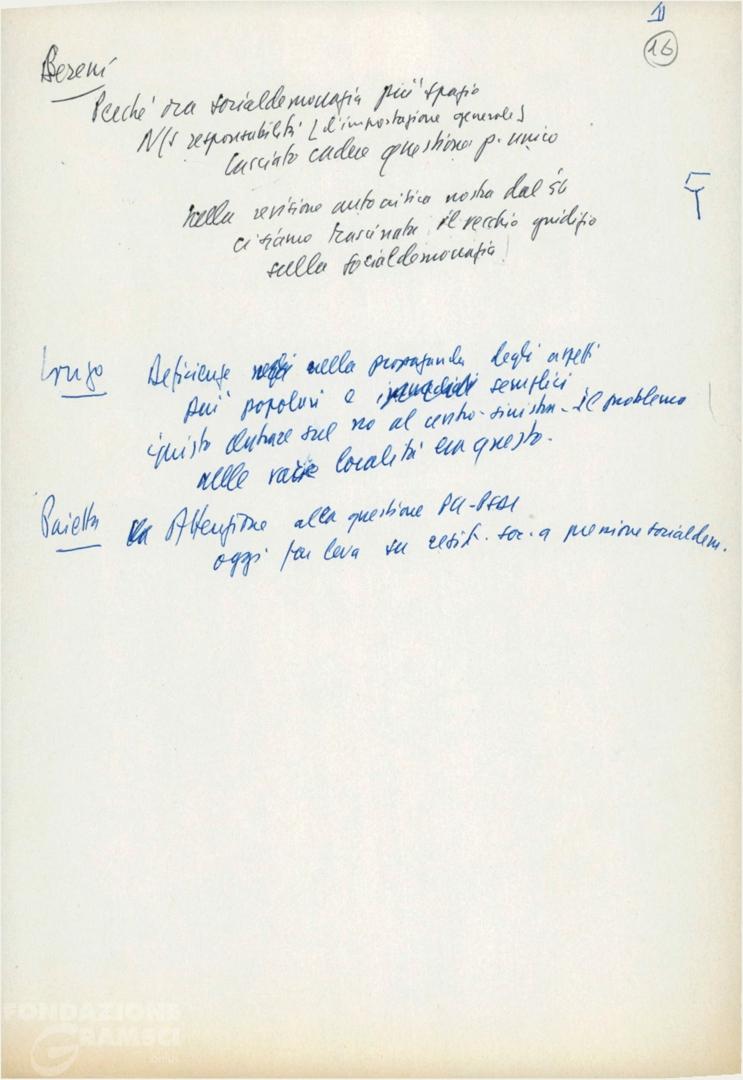 II
16
Sereni
Perché ora socialdemocrazia più spazio
N/s responsabilità [d'impostazione generale]
lasciato cadere questione p. unico
nella revisione autocritica nostra dal 56
ci siamo trascinati il vecchio giudizio
sulla socialdemocrazia
5
Longo Deficienze nella propaganda degli aspetti
più popolari e semplici
giusto puntare sul no al centro-sinistra - il problema
nelle varie località era questo.
Paietta Attenzione alla questione PSI-PSDI
oggi far leva su resist. soc. a pressione socialdem.
FONDAZIONE
GRAMSCI